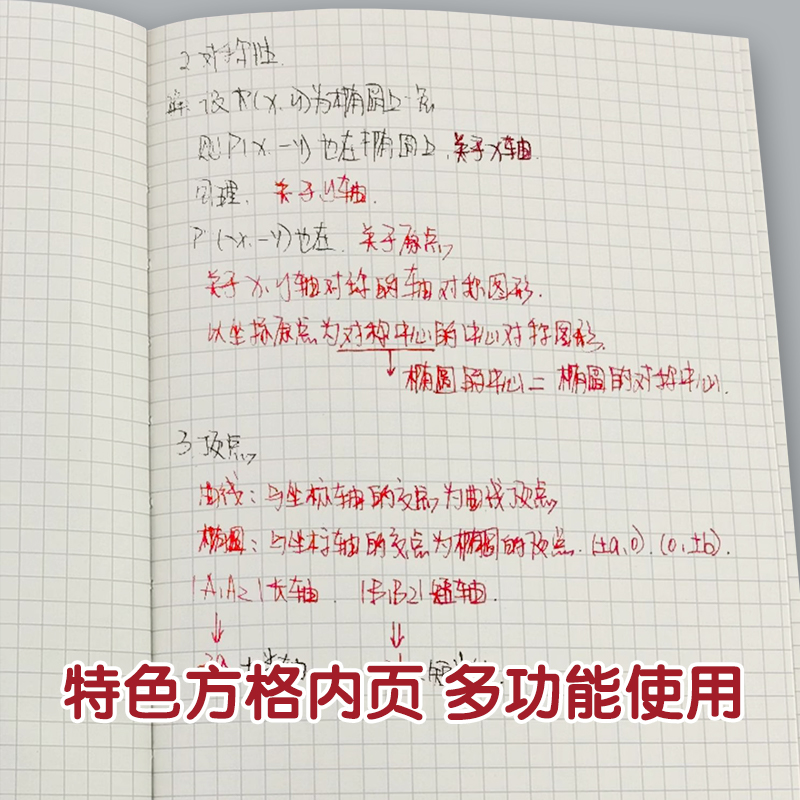 2 对称性.
解: 设P(x,y)为椭圆上一点
则P(x,-y)也在椭圆上,关于x轴.
同理, 关于y轴.
P(-x,-y)也在. 关于原点
关于x,y轴对称的轴对称图形.
以坐标原点为对称中心的中心对称图形.
椭圆的中心=椭圆的对称中心.
3 顶点
曲线:与坐标轴的交点为曲线顶点
椭圆:与坐标轴的交点为椭圆的顶点.(±a,0).(0,±b).
|A1A2|长轴. |B1B2|短轴.
特色方格内页 多功能使用